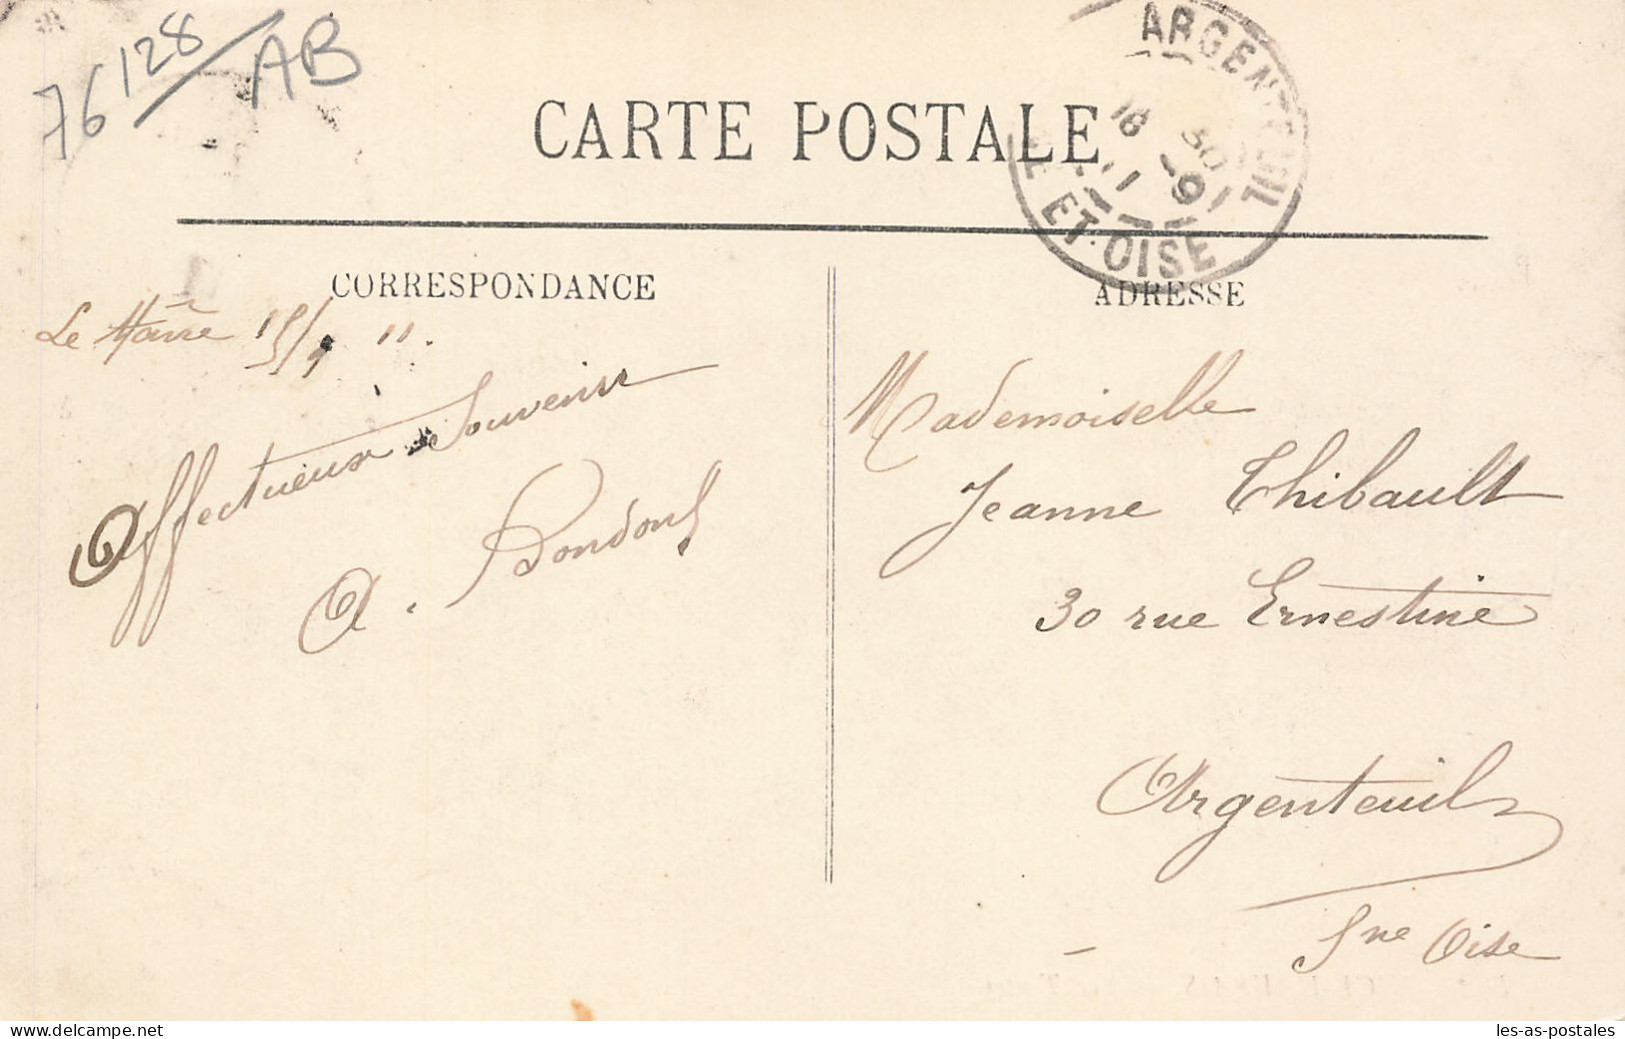 76128 / AB
CARTE POSTALE
ARGENTEUIL
18 30
11 -9
ET-OISE
CORRESPONDANCE
ADRESSE
Le Havre 15/9 11.
Affectueux Souvenir
A.
Mademoiselle
Jeanne Thibault
30 rue Ernestine
Argenteuil
Sne Oise
www.delcampe.net
les-as-postales